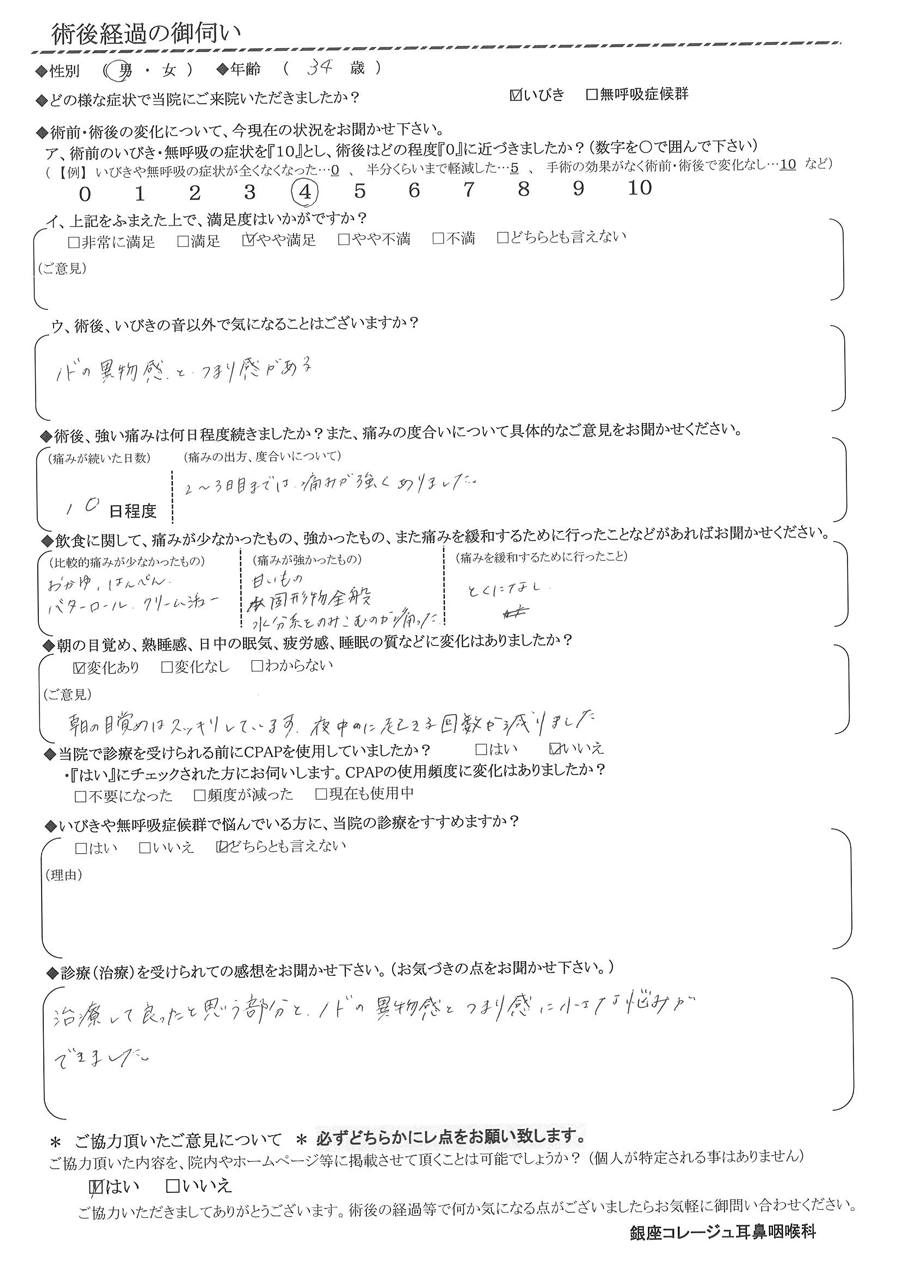 術後経過の御伺い
◆性別 （ 男 ・ 女 ） ◆年齢 （ 34 歳 ）
◆どの様な症状で当院にご来院いただきましたか？ ☑いびき □無呼吸症候群
◆術前・術後の変化について、今現在の状況をお聞かせ下さい。
ア、術前のいびき・無呼吸の症状を『10』とし、術後はどの程度『0』に近づきましたか？（数字を○で囲んで下さい）
（ 【例】 いびきや無呼吸の症状が全くなくなった…0 、 半分くらいまで軽減した…5 、 手術の効果がなく術前・術後で変化なし…10 など）
0 1 2 3 4 5 6 7 8 9 10
イ、上記をふまえた上で、満足度はいかがですか？
□非常に満足 □満足 ☑やや満足 □やや不満 □不満 □どちらとも言えない
（ご意見）
ウ、術後、いびきの音以外で気になることはございますか？
ノドの異物感と つまり感がある
◆術後、強い痛みは何日程度続きましたか？また、痛みの度合いについて具体的なご意見をお聞かせください。
（痛みが続いた日数） （痛みの出方、度合いについて）
10 日程度 2～3日目までは、痛みが強くありました。
◆飲食に関して、痛みが少なかったもの、強かったもの、また痛みを緩和するために行ったことなどがあればお聞かせください。
（比較的痛みが少なかったもの） （痛みが強かったもの） （痛みを緩和するために行ったこと）
おかゆ、はんぺん、 甘いもの とくになし
バターロール、クリームシチュー 固形物全般
水分系をのみこむのが痛った
◆朝の目覚め、熟睡感、日中の眠気、疲労感、睡眠の質などに変化はありましたか？
☑変化あり □変化なし □わからない
（ご意見）
朝の目覚めはスッキリしています。夜中のに起きる回数が減りました
◆当院で診療を受けられる前にCPAPを使用していましたか？ □はい ☑いいえ
・『はい』にチェックされた方にお伺いします。CPAPの使用頻度に変化はありましたか？
□不要になった □頻度が減った □現在も使用中
◆いびきや無呼吸症候群で悩んでいる方に、当院の診療をすすめますか？
□はい □いいえ ☑どちらとも言えない
（理由）
◆診療（治療）を受けられての感想をお聞かせ下さい。（お気づきの点をお聞かせ下さい。）
治療して良ったと思う部分と、ノドの異物感とつまり感に小さな悩みが
できました。
＊ ご協力頂いたご意見について ＊ 必ずどちらかにレ点をお願い致します。
ご協力頂いた内容を、院内やホームページ等に掲載させて頂くことは可能でしょうか？（個人が特定される事はありません）
☑はい □いいえ
ご協力いただきましてありがとうございます。術後の経過等で何か気になる点がございましたらお気軽に御問い合わせください。
銀座コレージュ耳鼻咽喉科